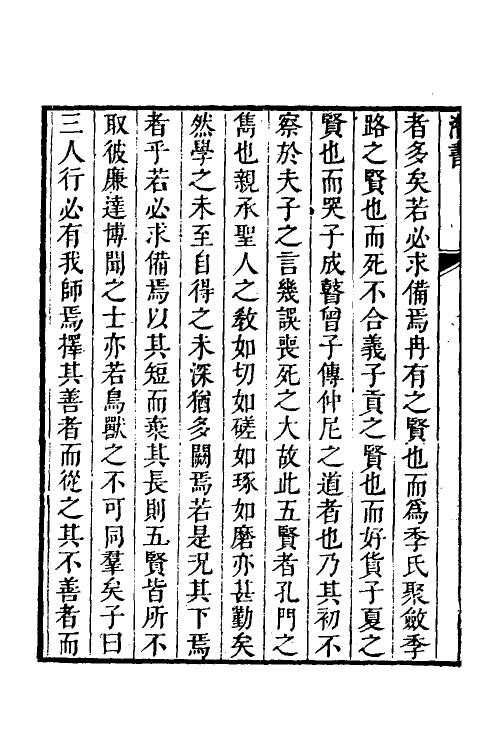 者多矣若必求備焉冉有之賢也而爲季氏聚斂季
路之賢也而死不合義子貢之賢也而好貨子夏之
賢也而哭子成瞽曾子傳仲尼之道者也乃其初不
察於夫子之言幾誤喪死之大故此五賢者孔門之
雋也親承聖人之敎如切如磋如琢如磨亦甚勤矣
然學之未至自得之未深猶多闕焉若是况其下焉
者乎若必求備焉以其短而棄其長則五賢皆所不
取彼廉達博聞之士亦若鳥獸之不可同羣矣子曰
三人行必有我師焉擇其善者而從之其不善者而